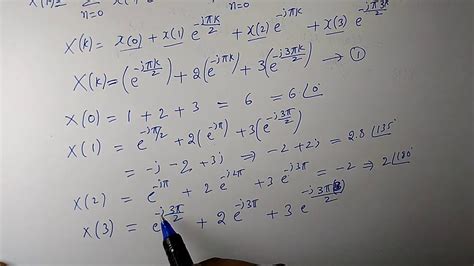 n=0 n=0
X(k) = x(0) + x(1) e^{-jπk/2} + x(2) e^{-jπk} + x(3) e^{-jπ3k/2}
X(k) = (e^{-jπk/2}) + 2(e^{-jπk}) + 3(e^{-j3πk/2}) → ①
X(0) = 1 + 2 + 3 = 6 = 6∠0
X(1) = e^{-jπ/2} + 2(e^{-jπ}) + 3(e^{-j3π/2})
= -j - 2 + 3j ⇒ -2 + 2j = 2.8∠135°
X(2) = e^{-jπ} + 2 e^{-j2π} + 3 e^{-j3π} = -2 ⇒ 2∠180°
X(3) = e^{-j3π/2} + 2 e^{-j3π} + 3 e^{-j3π(3)/2}